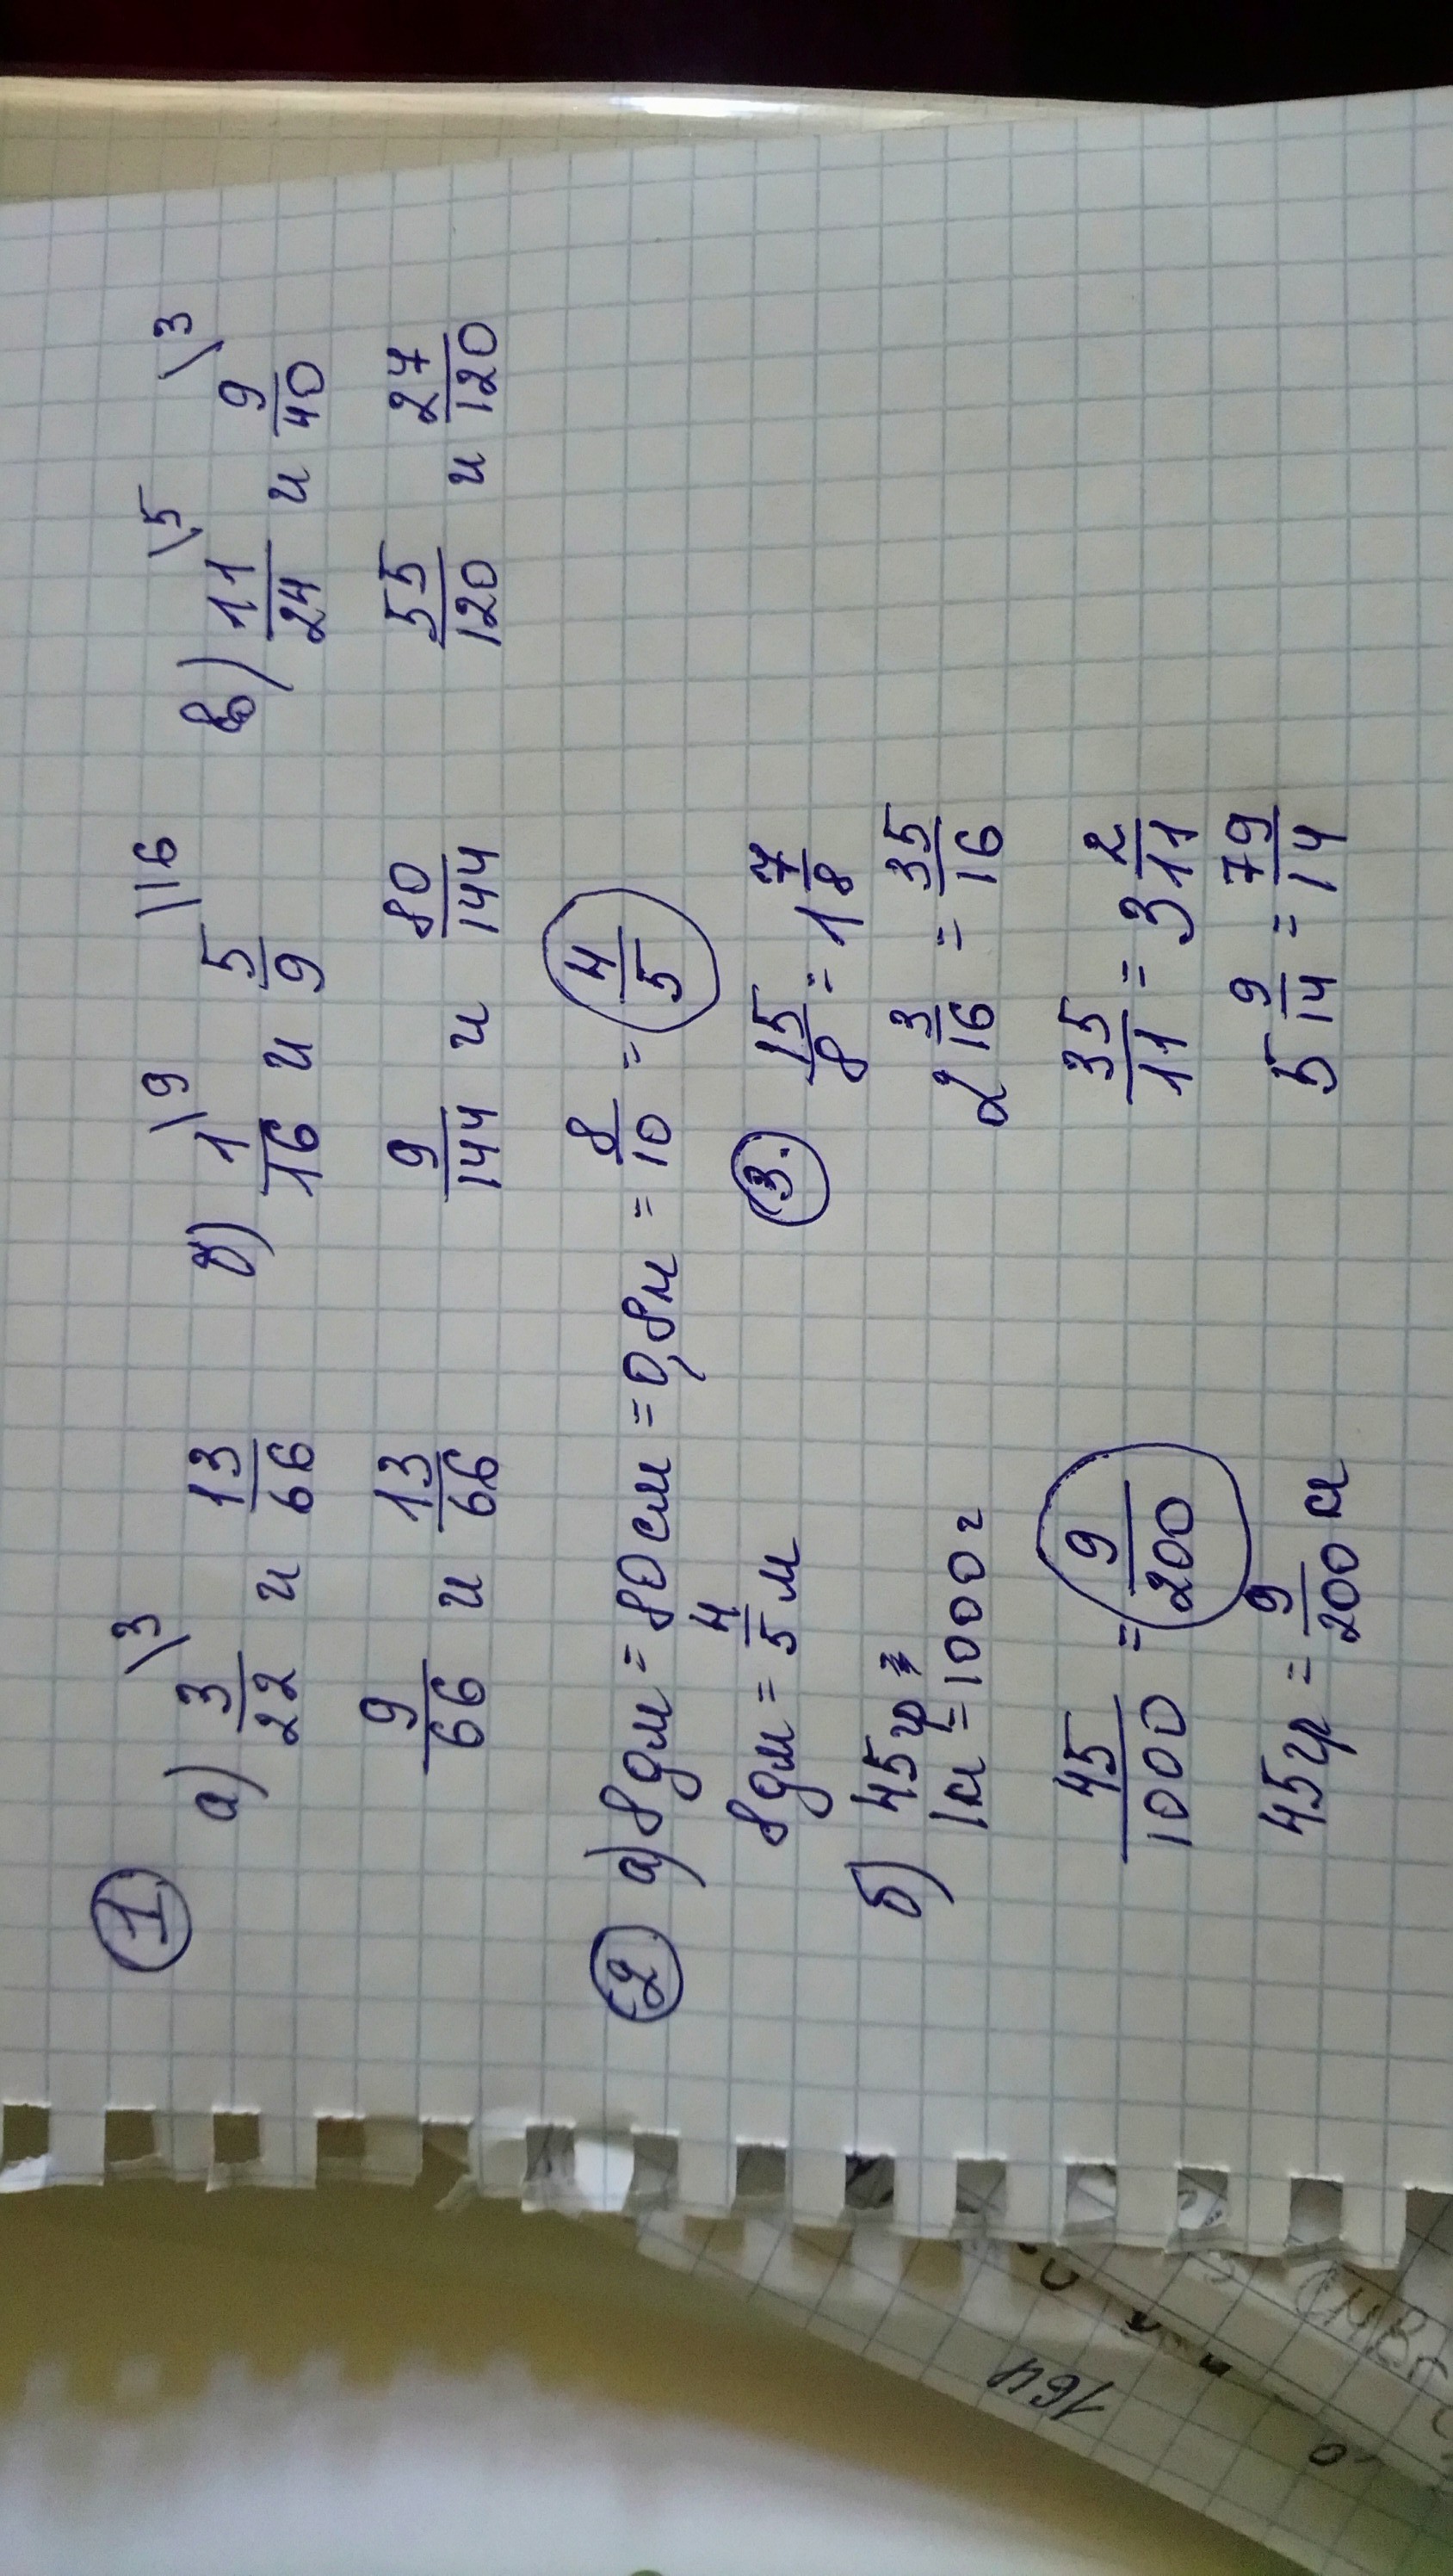 1
а) 3/22 \3 и 13/66
9/66 и 13/66
б) 1/16 \9 и 5/9 \16
9/144 и 80/144
в) 11/24 \5 и 9/40 \3
55/120 и 27/120
2 а) 8дм = 80см = 0,8м = 8/10 = 4/5
8дм = 4/5 м
б) 45гр
1кг = 1000г
45/1000 = 9/200
45гр = 9/200 кг
3. 15/8 = 1 7/8
2 3/16 = 35/16
35/11 = 3 2/11
5 9/14 = 79/14
164